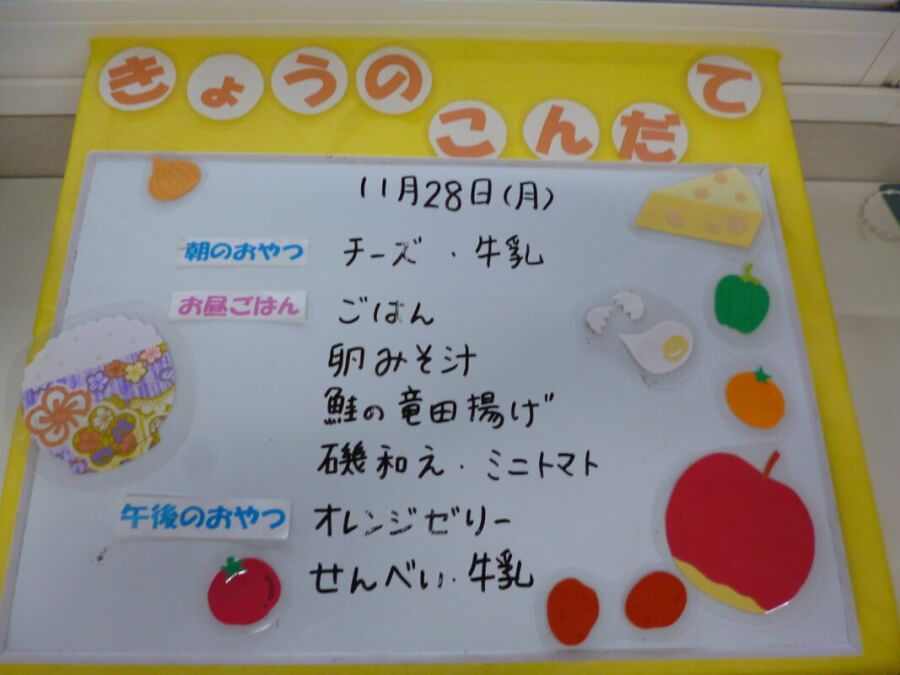 きょうの
こんだて
11月28日(月)
朝のおやつ チーズ・牛乳
お昼ごはん ごはん
卵みそ汁
鮭の竜田揚げ
磯和え・ミニトマト
午後のおやつ オレンジゼリー
せんべい・牛乳